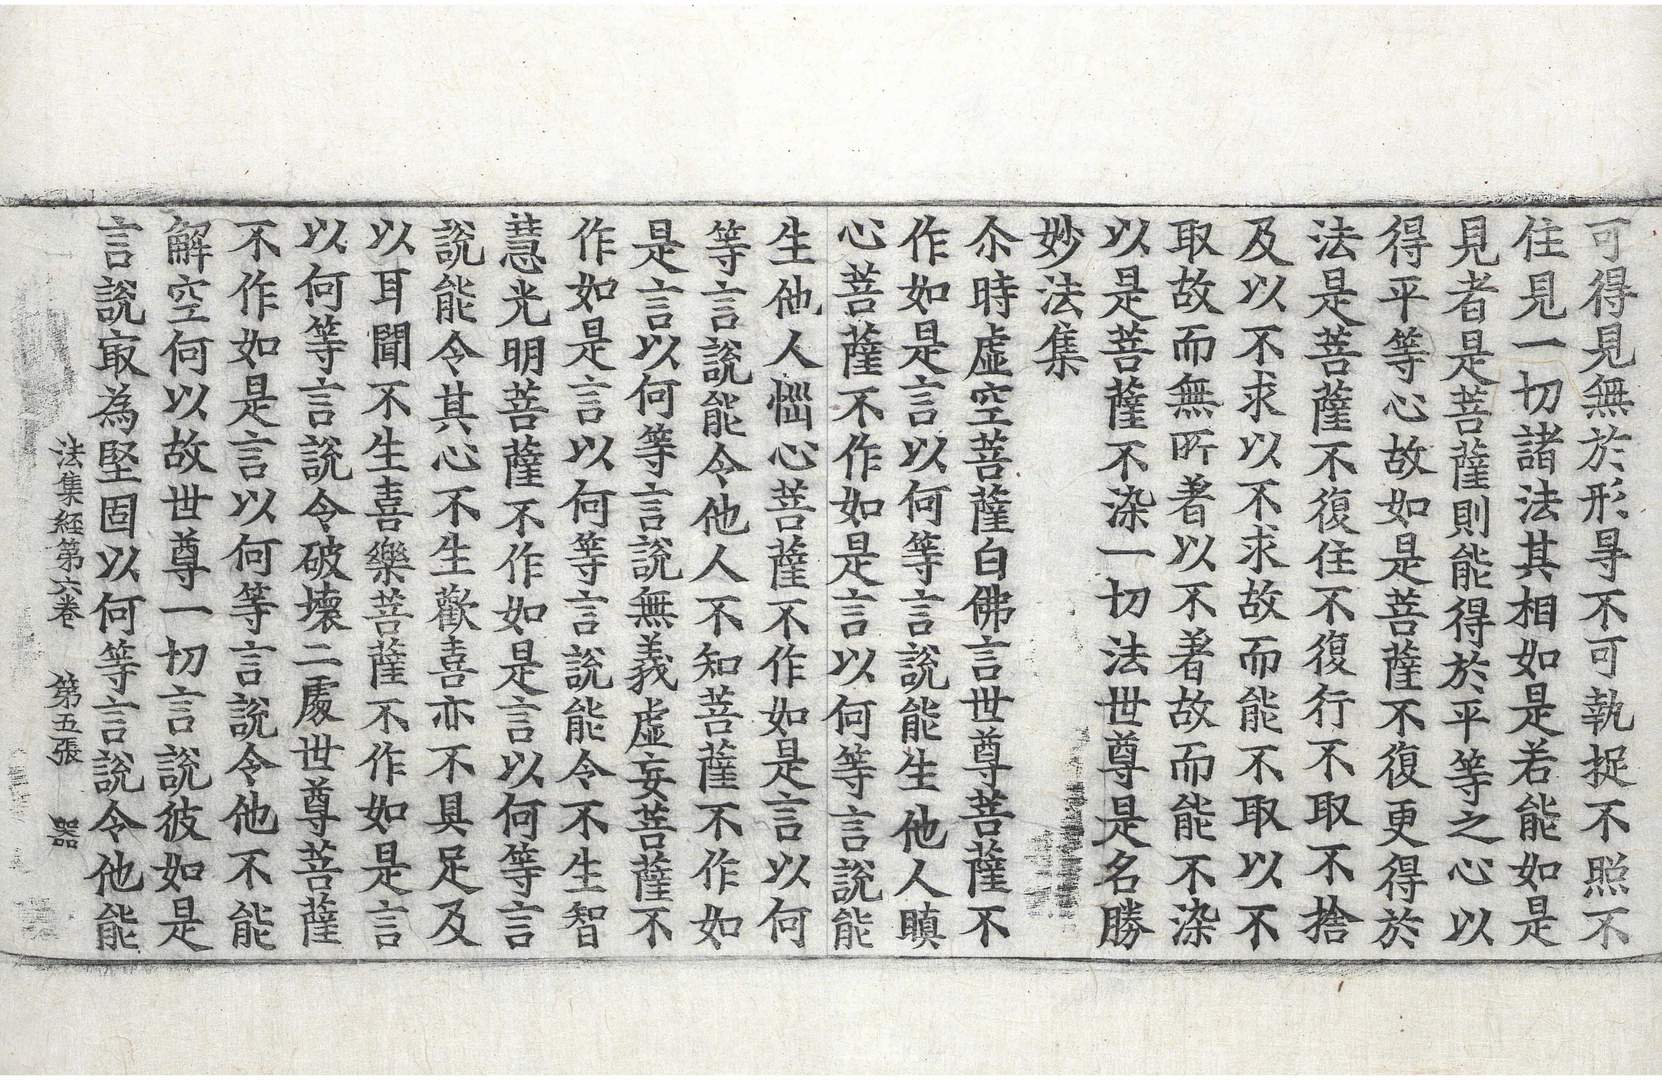 可得見無於形㝵不可執捉不照不
住見一切諸法其相如是若能如是
見者是菩薩則能得於平等之心以
得平等心故如是菩薩不復更得於
法是菩薩不復住不復行不取不捨
及以不求以不求故而能不取以不
取故而無所著以不著故而能不染
以是菩薩不染一切法世尊是名勝
妙法集
尒時虛空菩薩白佛言世尊菩薩不
作如是言以何等言說能生他人瞋
心菩薩不作如是言以何等言說能
生他人惱心菩薩不作如是言以何
等言說能令他人不知菩薩不作如
是言以何等言說無義虛妄菩薩不
作如是言以何等言說能令不生智
慧光明菩薩不作如是言以何等言
說能令其心不生歡喜亦不具足及
以耳聞不生喜樂菩薩不作如是言
以何等言說令破壞二處世尊菩薩
不作如是言以何等言說令他不能
解空何以故世尊一切言說彼如是
言說㝡為堅固以何等言說令他能
法集經第六卷 第五張 器